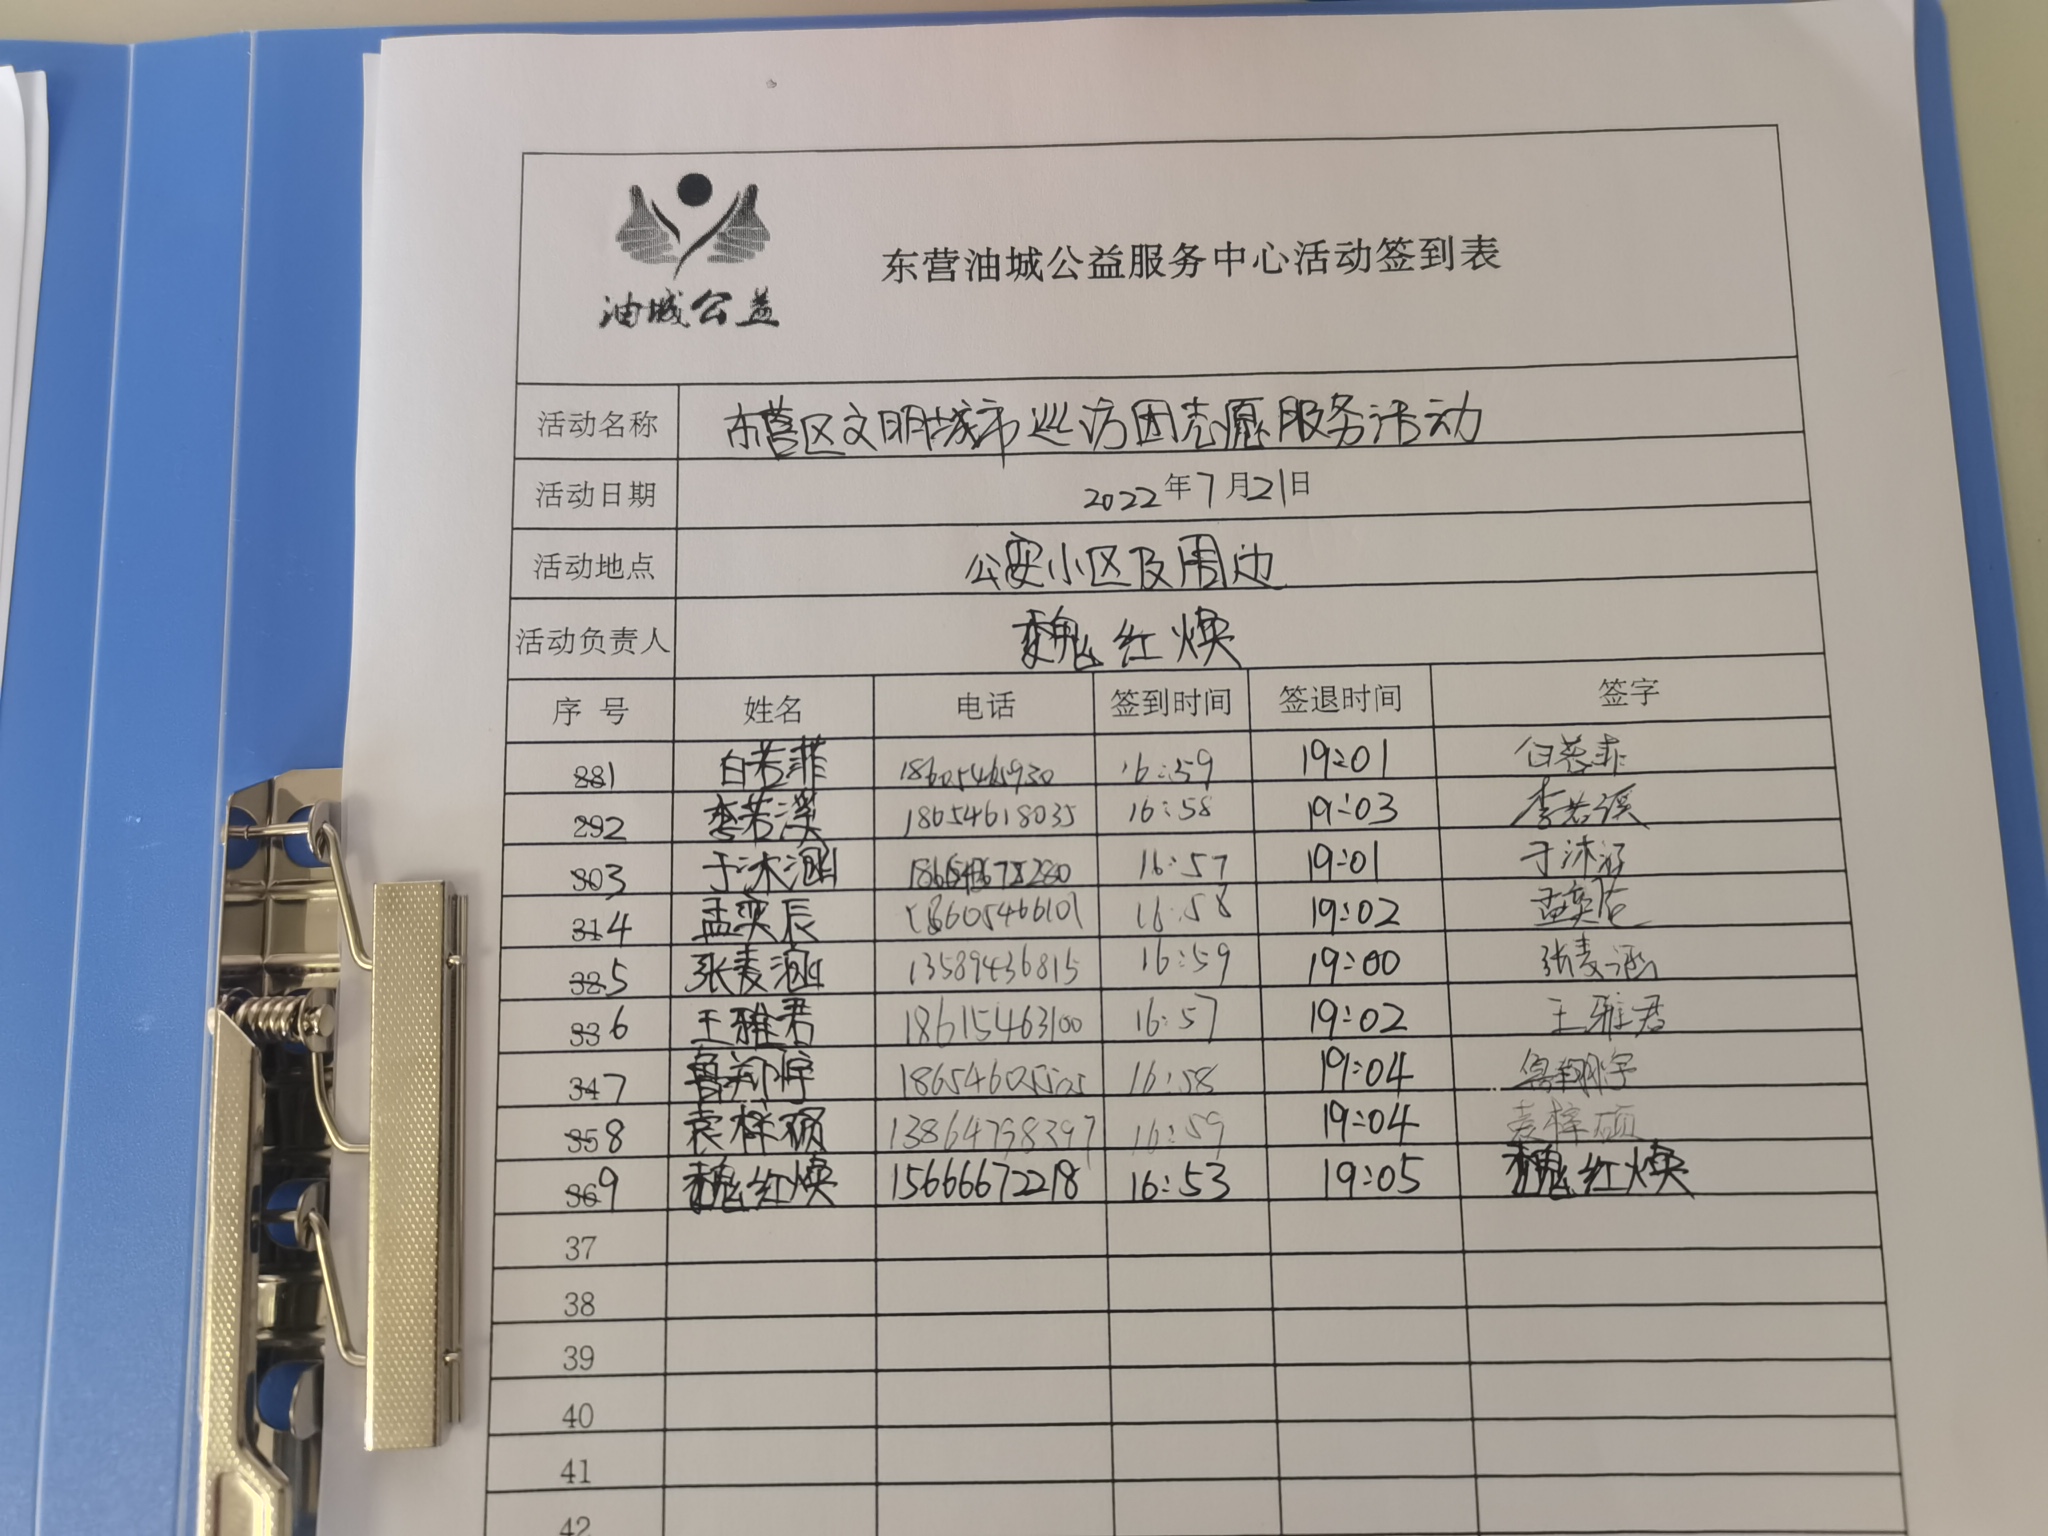 油城公益
东营油城公益服务中心活动签到表
活动名称 东营区文明城市巡访团志愿服务活动
活动日期 2022年7月21日
活动地点 公安小区及周边
活动负责人 魏红焕
序号 姓名 电话 签到时间 签退时间 签字
1 白若菲 18605465930 16:59 19:01 白若菲
2 李若溪 18654618035 16:58 19:03 李若溪
3 于沐涵 16:57 19:01 于沐涵
4 孟奕辰 18605466101 16:58 19:02 孟奕辰
5 张麦涵 13589436815 16:59 19:00 张麦涵
6 王雅君 18615463100 16:57 19:02 王雅君
7 鲁翔宇 18654605505 16:58 19:04 鲁翔宇
8 袁梓硕 13864798397 16:59 19:04 袁梓硕
9 魏红焕 15666672218 16:53 19:05 魏红焕
37
38
39
40
41
42